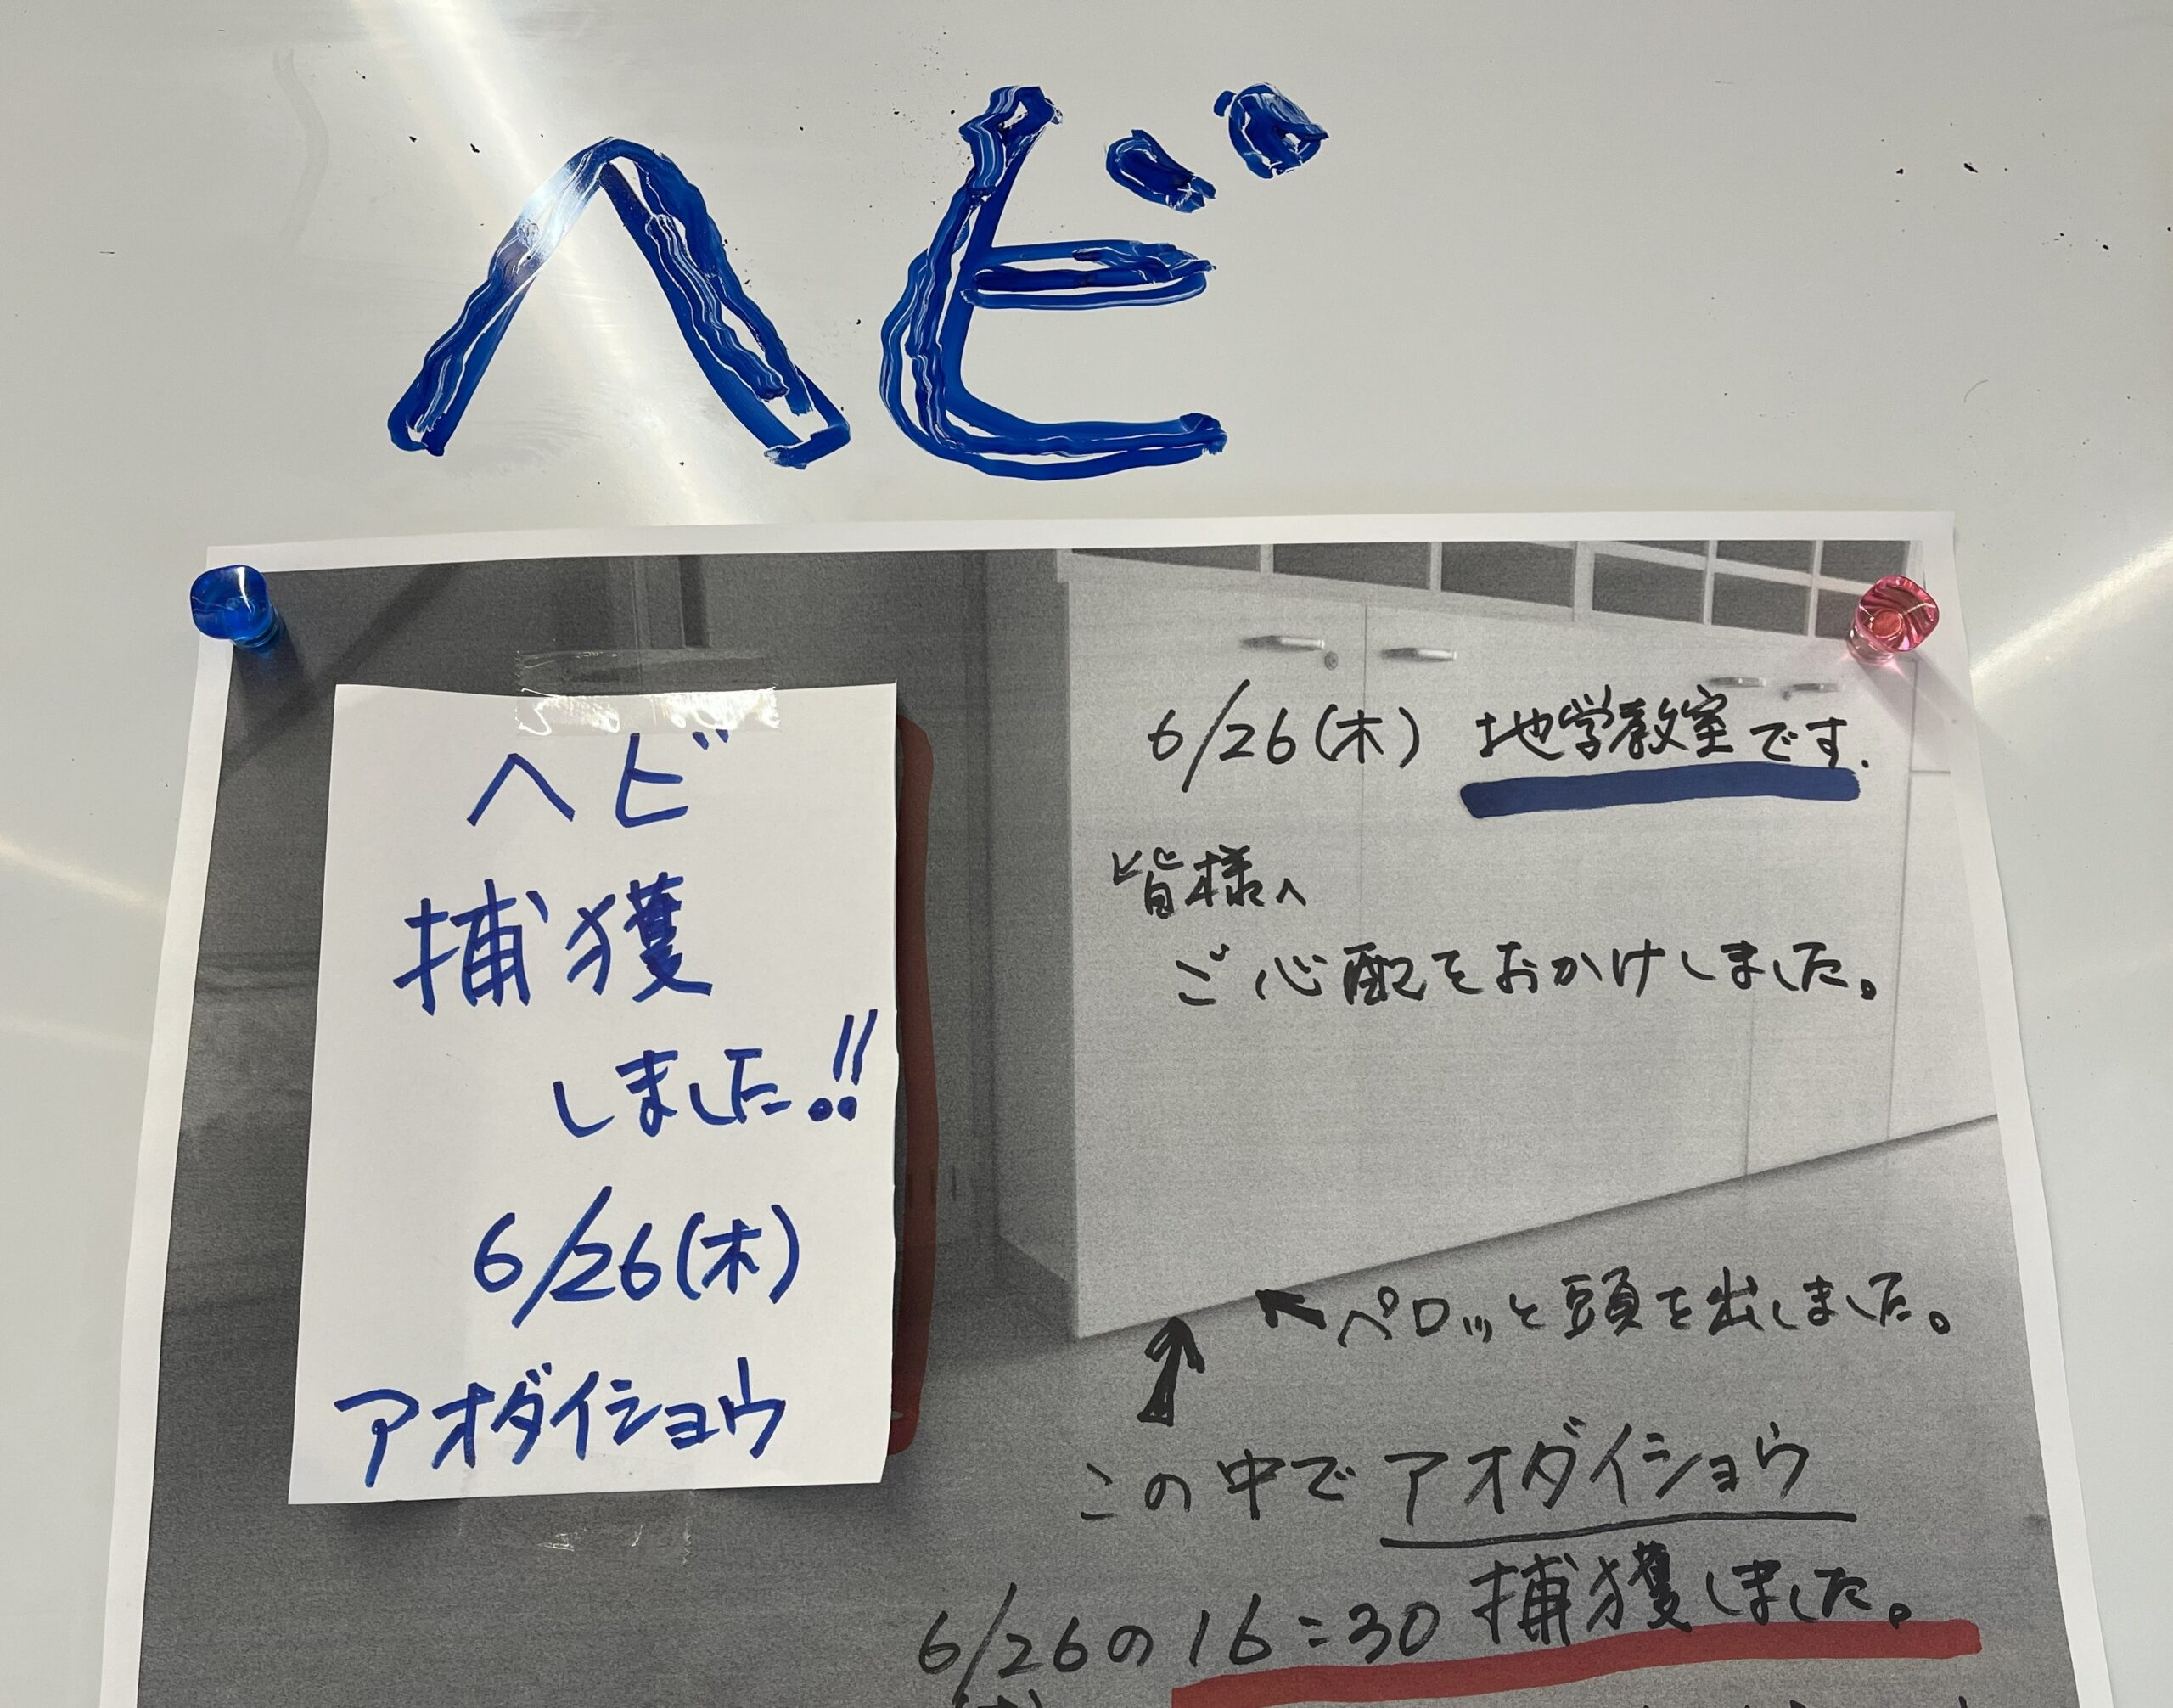 ヘビ
ヘビ
捕獲
しました!!
6/26(木)
アオダイショウ
6/26(木) 地学教室です.
皆様へ
ご心配をおかけしました。
←ペロッと頭を出しました。
↑
この中でアオダイショウ
捕獲しました。
6/26の16:30